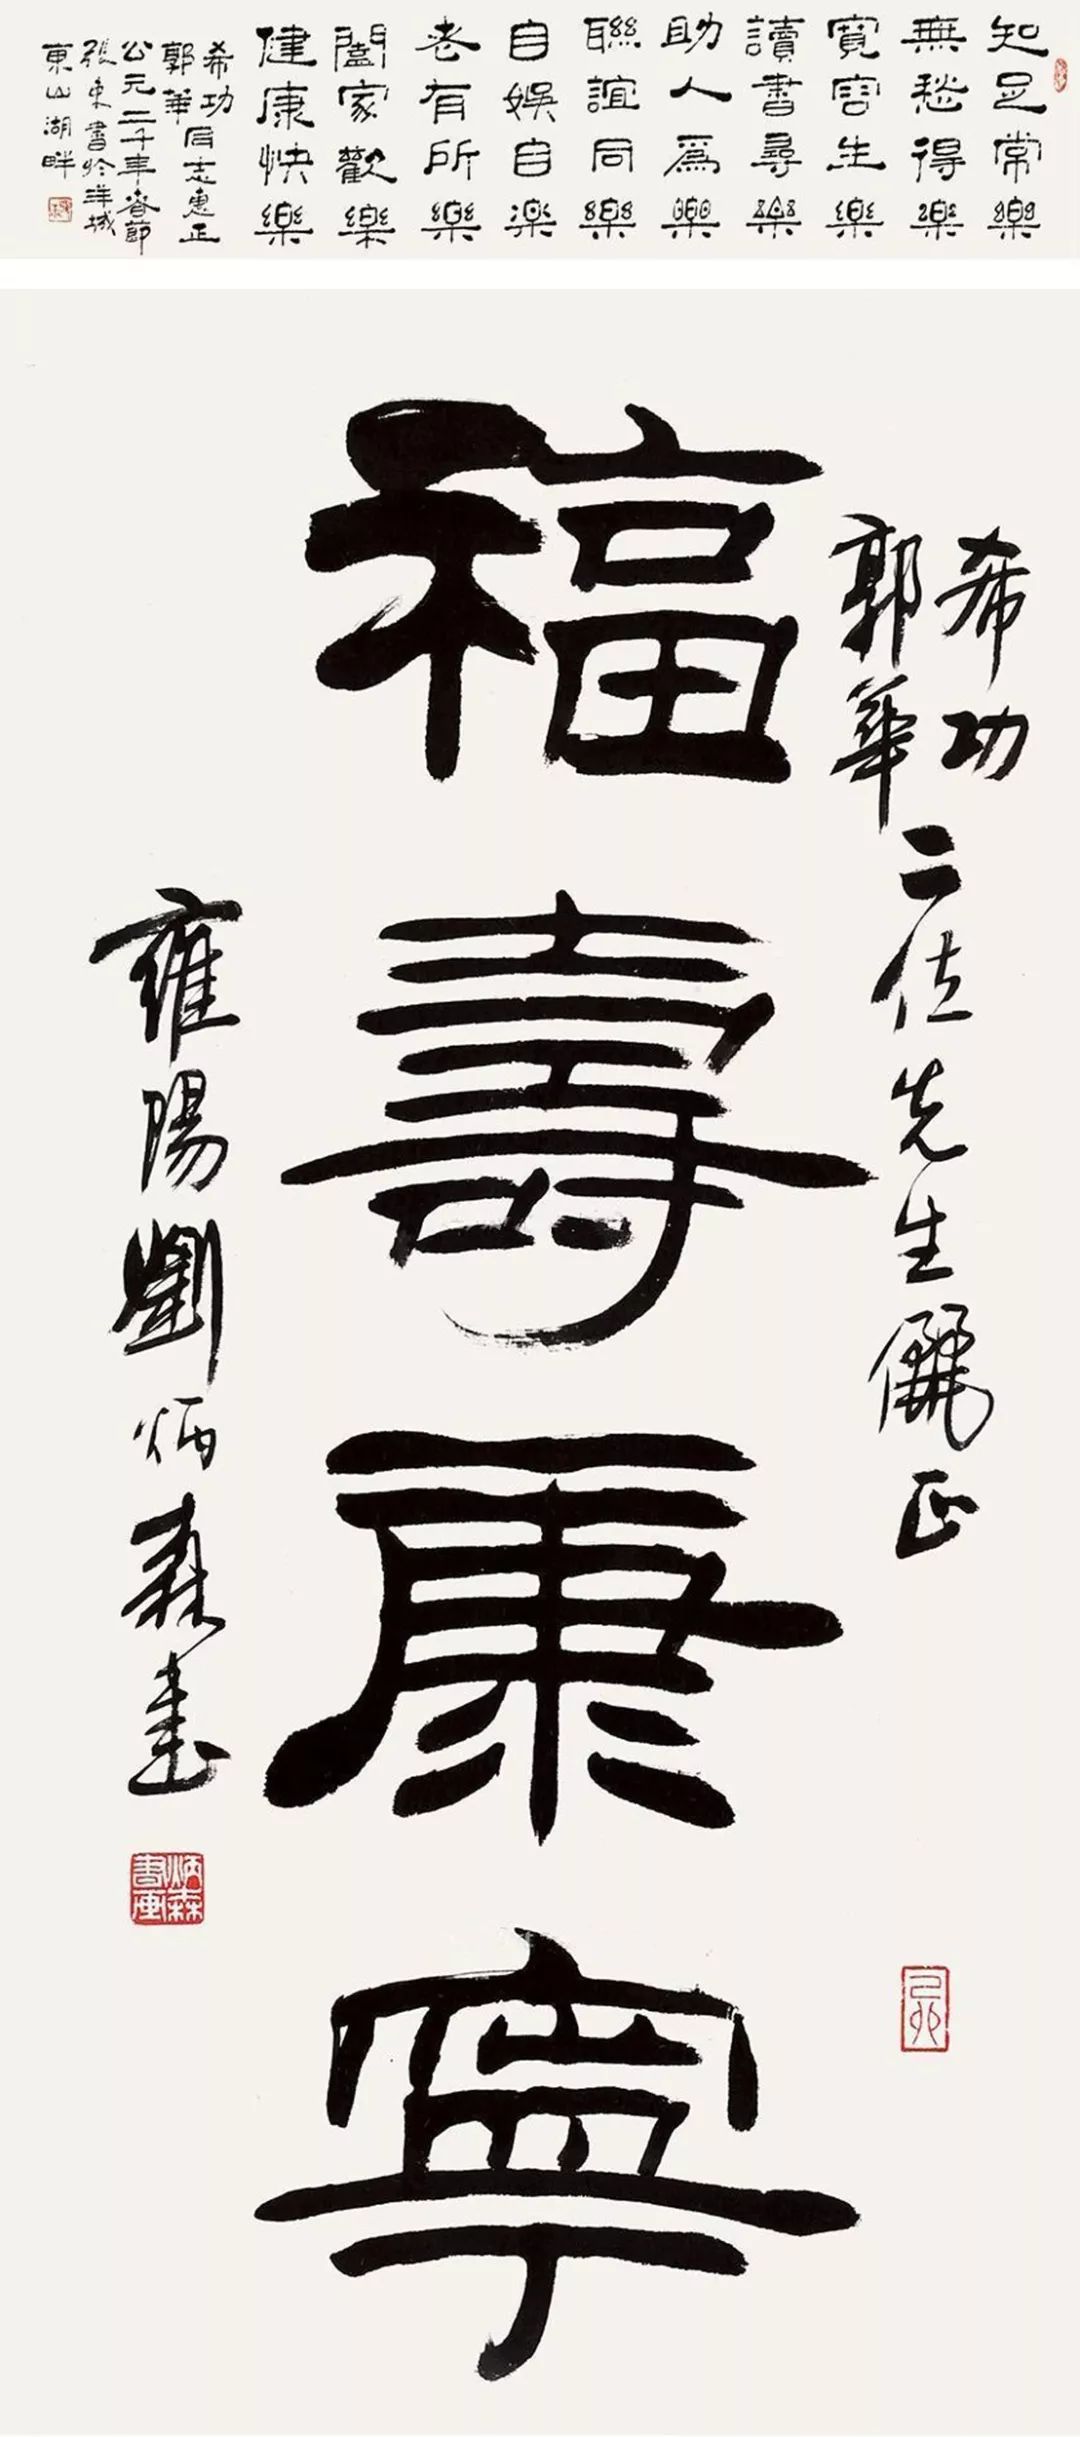 知足常樂
無愁得樂
寬容生樂
讀書尋樂
助人爲樂
聯誼同樂
自娛自樂
老有所樂
闔家歡樂
健康快樂
希功
郭華同志惠正
公元二千年春節
張東書於羊城
東山湖畔
希功
郭華二位先生儷正
福壽康寧
雍陽劉炳森書
炳森書画
己卯